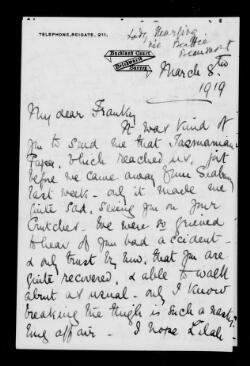 TELEPHONE, REIGATE, 211.
Lady Nearling
née Beattie
Beaumont
Buckland Court
Betchworth
Surrey
March 8th
1919
My dear Franky
It was kind of
you to send me that Tasmanian
Paper, which reached us, just
before we came away from
last week - only it made me
quite sad, seeing you on your
Crutches. We were so grieved
to hear of you bad accident -
& only trust by now, that you are
quite recovered, & able to walk
about as usual - only I know
breaking the thigh is such a nasty
long affair - I hope Lilah